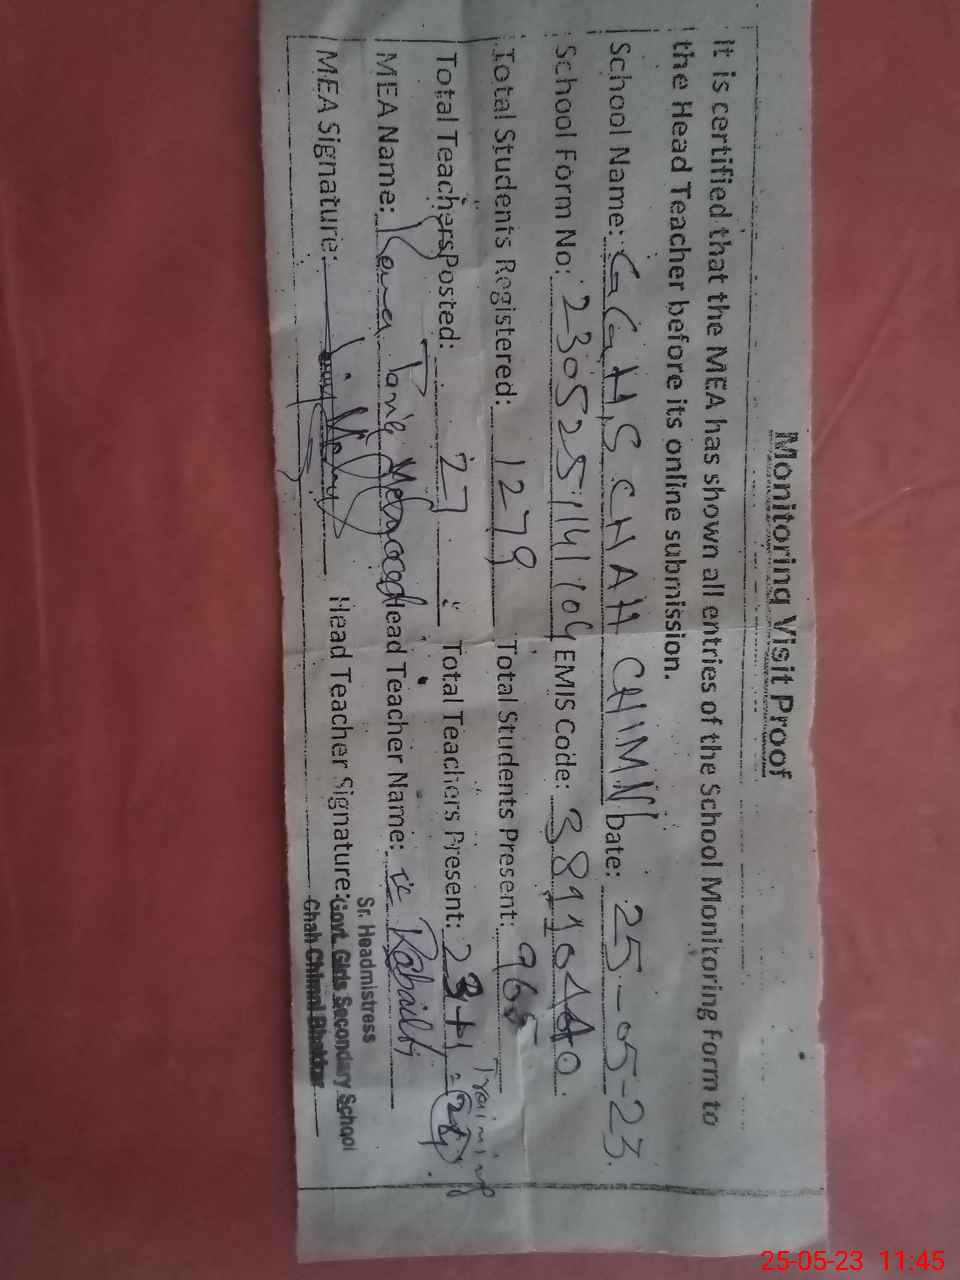 Monitoring Visit Proof
It is certified that the MEA has shown all entries of the School Monitoring Form to
the Head Teacher before its online submission.
School Name: G G H S CHAH CHIMN Date: 25-05-23
School Form No: EMIS Code:
Total Students Registered: 1279 Total Students Present: 965
Total Teachers Posted: 27 Total Teachers Present: 23+1 = 24 Training
MEA Name: Rana Tariq Mehmood Head Teacher Name:
MEA Signature: Head Teacher Signature:
Sr. Headmistress
Govt. Girls Secondary School
Chah Chimni Bhakkar
25-05-23 11:45